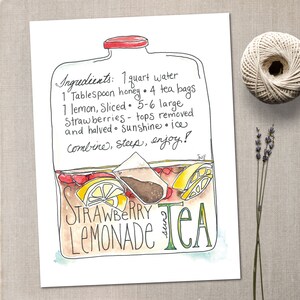 Ingredients: 1 quart water
1 Tablespoon honey • 4 tea bags
1 lemon, sliced • 5-6 large
strawberries - tops removed
and halved • sunshine • ice
combine, steep, enjoy!
STRAWBERRY
LEMONADE sun TEA